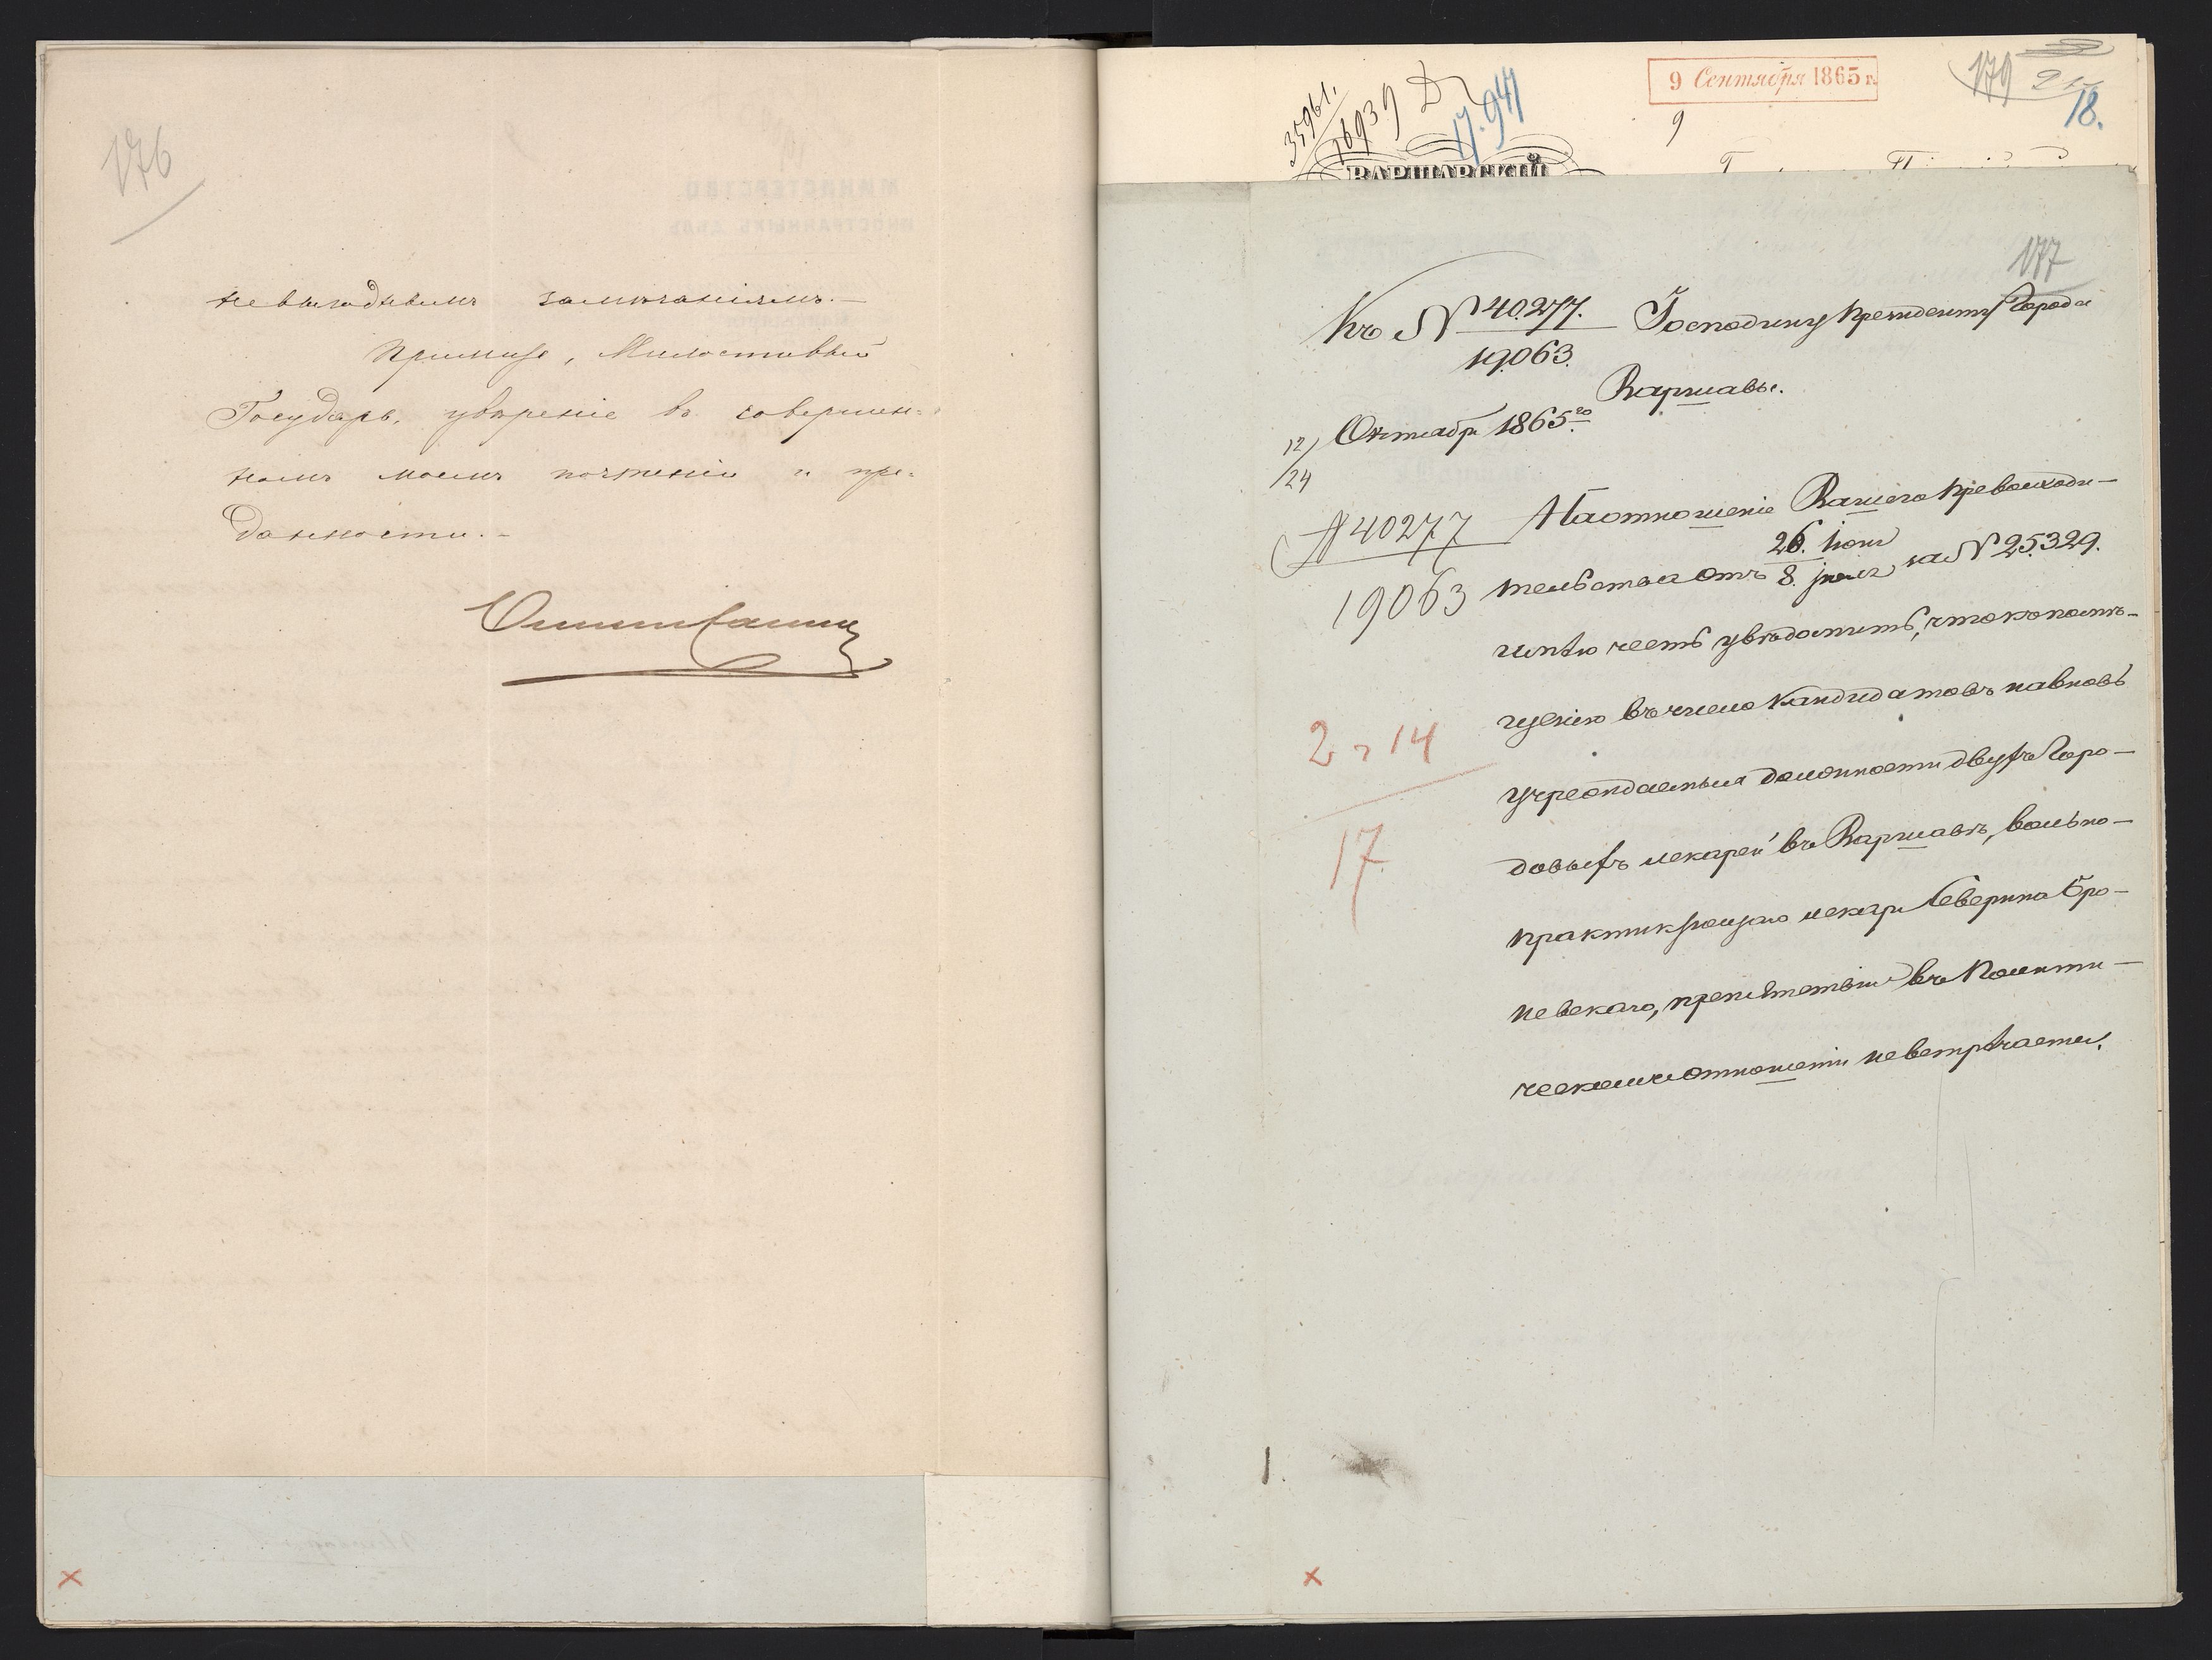 176
невыгоднымъ замѣчаніямъ.—
Примите, Милостивый
Государь, увѣреніе въ совершен=
номъ моемъ почтеніи и пре=
данности.—
35961.
16939
17.941
9 Сентября 1865 г.
9
179
18.
ВАРШАВСКІЙ
177
Къ № 40277. Господину Президенту Города
19063.
Варшавы.
12/24 Октября 1865 го
№ 40277
19063
На отношеніе Вашего Превосходи—
тельства отъ 26. Іюня / 8. Іюля за № 25329.
имѣю честь увѣдомить, что къ помѣ—
щенію въ число Кандидатовъ на вновь
учреждаемыя должности двухъ Горо—
довыхъ лекарей въ Варшавѣ, вольно—
практикующаго лекаря Северина Бро—
невскаго, препятствій въ Полити—
ческомъ отношеніи не встрѣчается.
2 14
17
1.